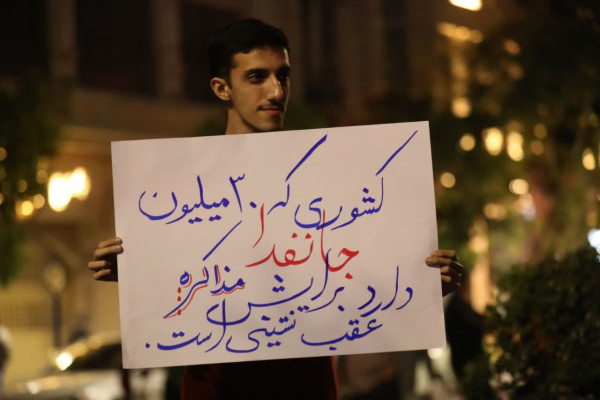 کشوری که ۳۰ میلیون
جانفدا
دارد برایش مذاکره
عقب نشینی است.